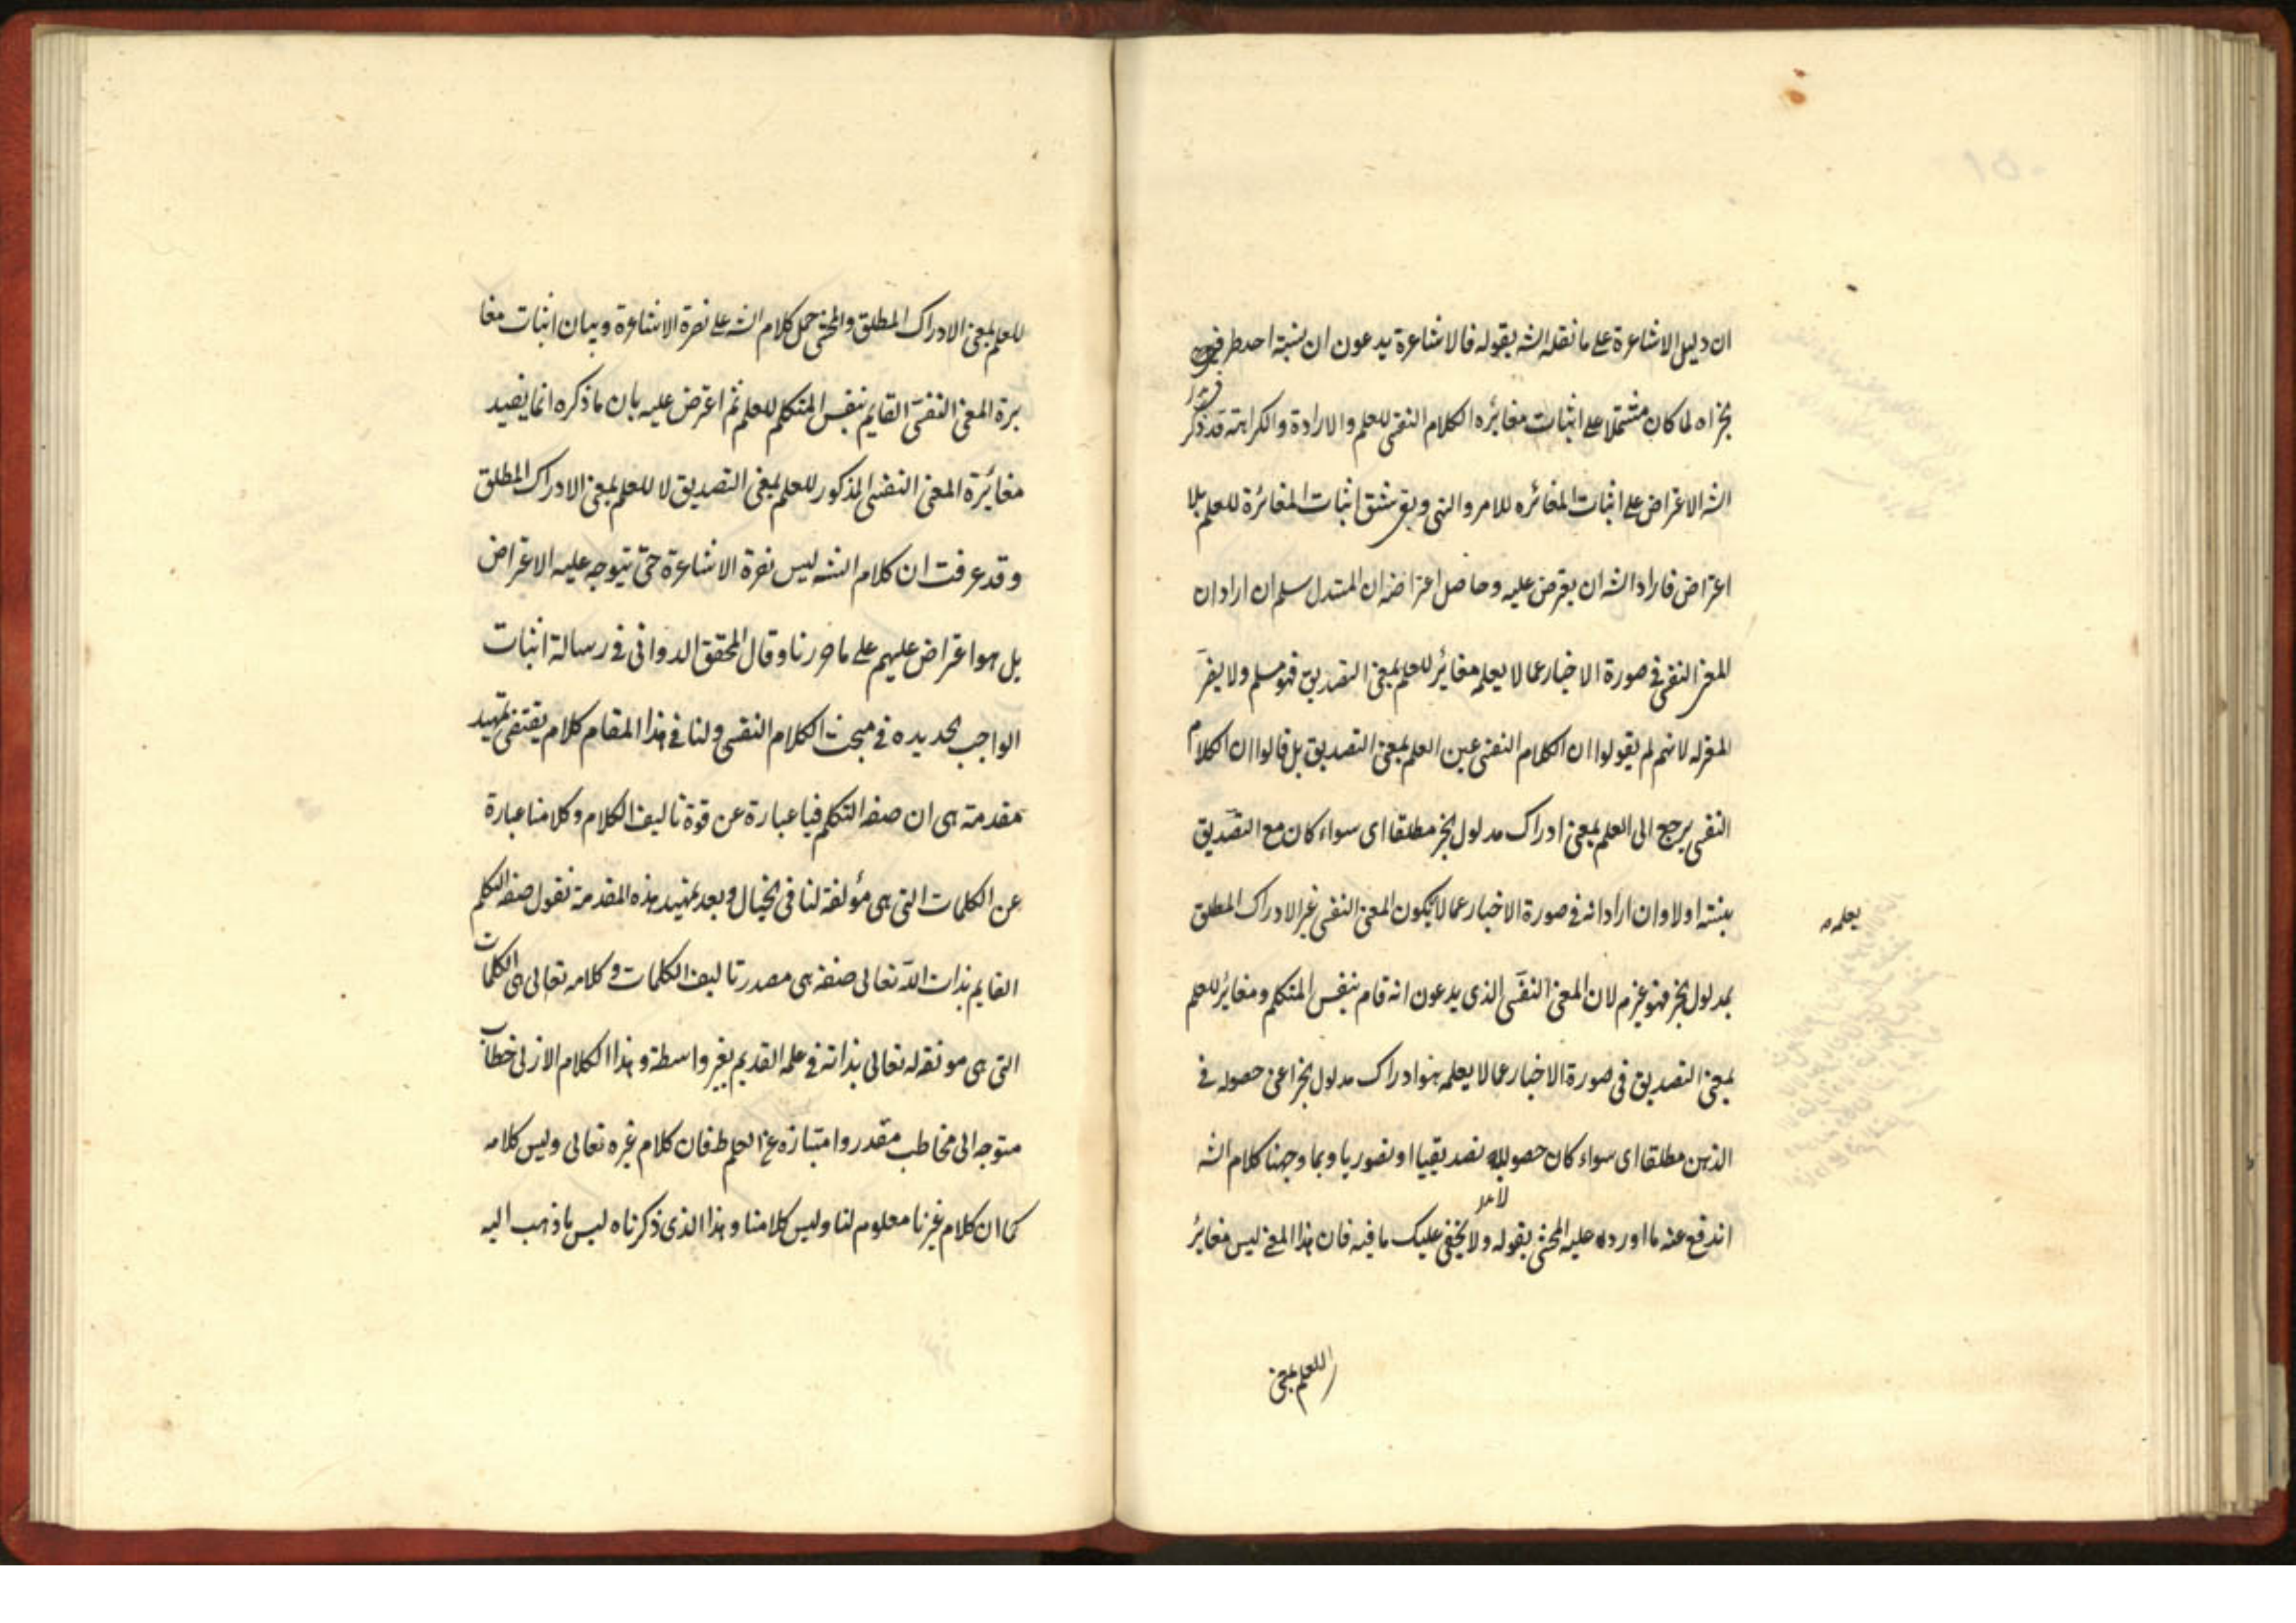 ان دليل الاشاعرة على ما نقله الشه بقوله فالاشاعرة يدعون ان نسبة احد طرفى
الخبر اه لما كان مشتملا على اثبات مغائره الكلام النفسى للعلم والارادة والكراهة قد ذكر
الشه الاعتراض على اثبات المغائره للامر والنهى وبقى شق اثبات المغائرة للعلم بلا
اعتراض فاراد الشه ان يعترض عليه وحاصل اعتراضه ان المستدل سلم ان اراد ان
المعنى النفسى فى صورة الاخبار عما لا يعلمه مغائر للعلم بمعنى التصديق فهو مسلم ولا يضر
المعتزله لانهم لم يقولوا ان الكلام النفسى عين العلم بمعنى التصديق بل قالوا ان الكلام
النفسى يرجع الى العلم بمعنى ادراك مدلول الخبر مطلقا اى سواء كان مع التصديق
بنسبته اولا وان اراد انه فى صورة الاخبار عما لا يكون المعنى النفسى غير الادراك المطلق
يعلمه
بمدلول الخبر فهو غير م لان المعنى النفسى الذى يدعون انه قام بنفس المتكلم ومغائر للعلم
بمعنى التصديق فى صورة الاخبار عما لا يعلمه هو ادراك مدلول الخبر اعنى حصوله فى
الذهن مطلقا اى سواء كان حصوله تصديقيا او تصوريا وبما وجهنا كلام الشه
اندفع عنه ما اورده عليه المحشى بقوله ولا يخفى عليك ما فيه فان هذا المعنى ليس مغائر
للعلم بمعنى
للعلم بمعنى الادراك المطلق والمحشى حمل كلام الشه على نصرة الاشاعرة وبيان اثبات مغا
يرة المعنى النفسى القايم بنفس المتكلم للعلم ثم اعترض عليه بان ما ذكره انما يفيد
مغائرة المعنى النفسى المذكور للعلم بمعنى التصديق لا للعلم بمعنى الادراك المطلق
وقد عرفت ان كلام الشه ليس نصرة الاشاعرة حتى يتوجه عليه الاعتراض
بل هو اعتراض عليهم على ما حررنا وقال المحقق الدوانى فى رسالة اثبات
الواجب الجديده فى مبحث الكلام النفسى ولنا فى هذا المقام كلام يقتضى تمهيد
مقدمة هى ان صفه التكلم فينا عبارة عن قوة تاليف الكلام وكلامنا عبارة
عن الكلمات التى هى مؤلفة لنا فى الخيال وبعد تمهيد هذه المقدمة نقول صفه التكلم
القايم بذات الله تعالى صفة هى مصدر تاليف الكلمات وكلامه تعالى هى الكلمات
التى هى مولفه له تعالى بذاته فى علمه القديم بغير واسطة وهذا الكلام الازلى خطاب
متوجه الى مخاطب مقدر وامتيازه عن العلم ظ فان كلام غيره تعالى وليس كلامه
كما ان كلام غيرنا معلوم لنا وليس كلامنا وهذا الذى ذكرناه ليس ما ذهب اليه